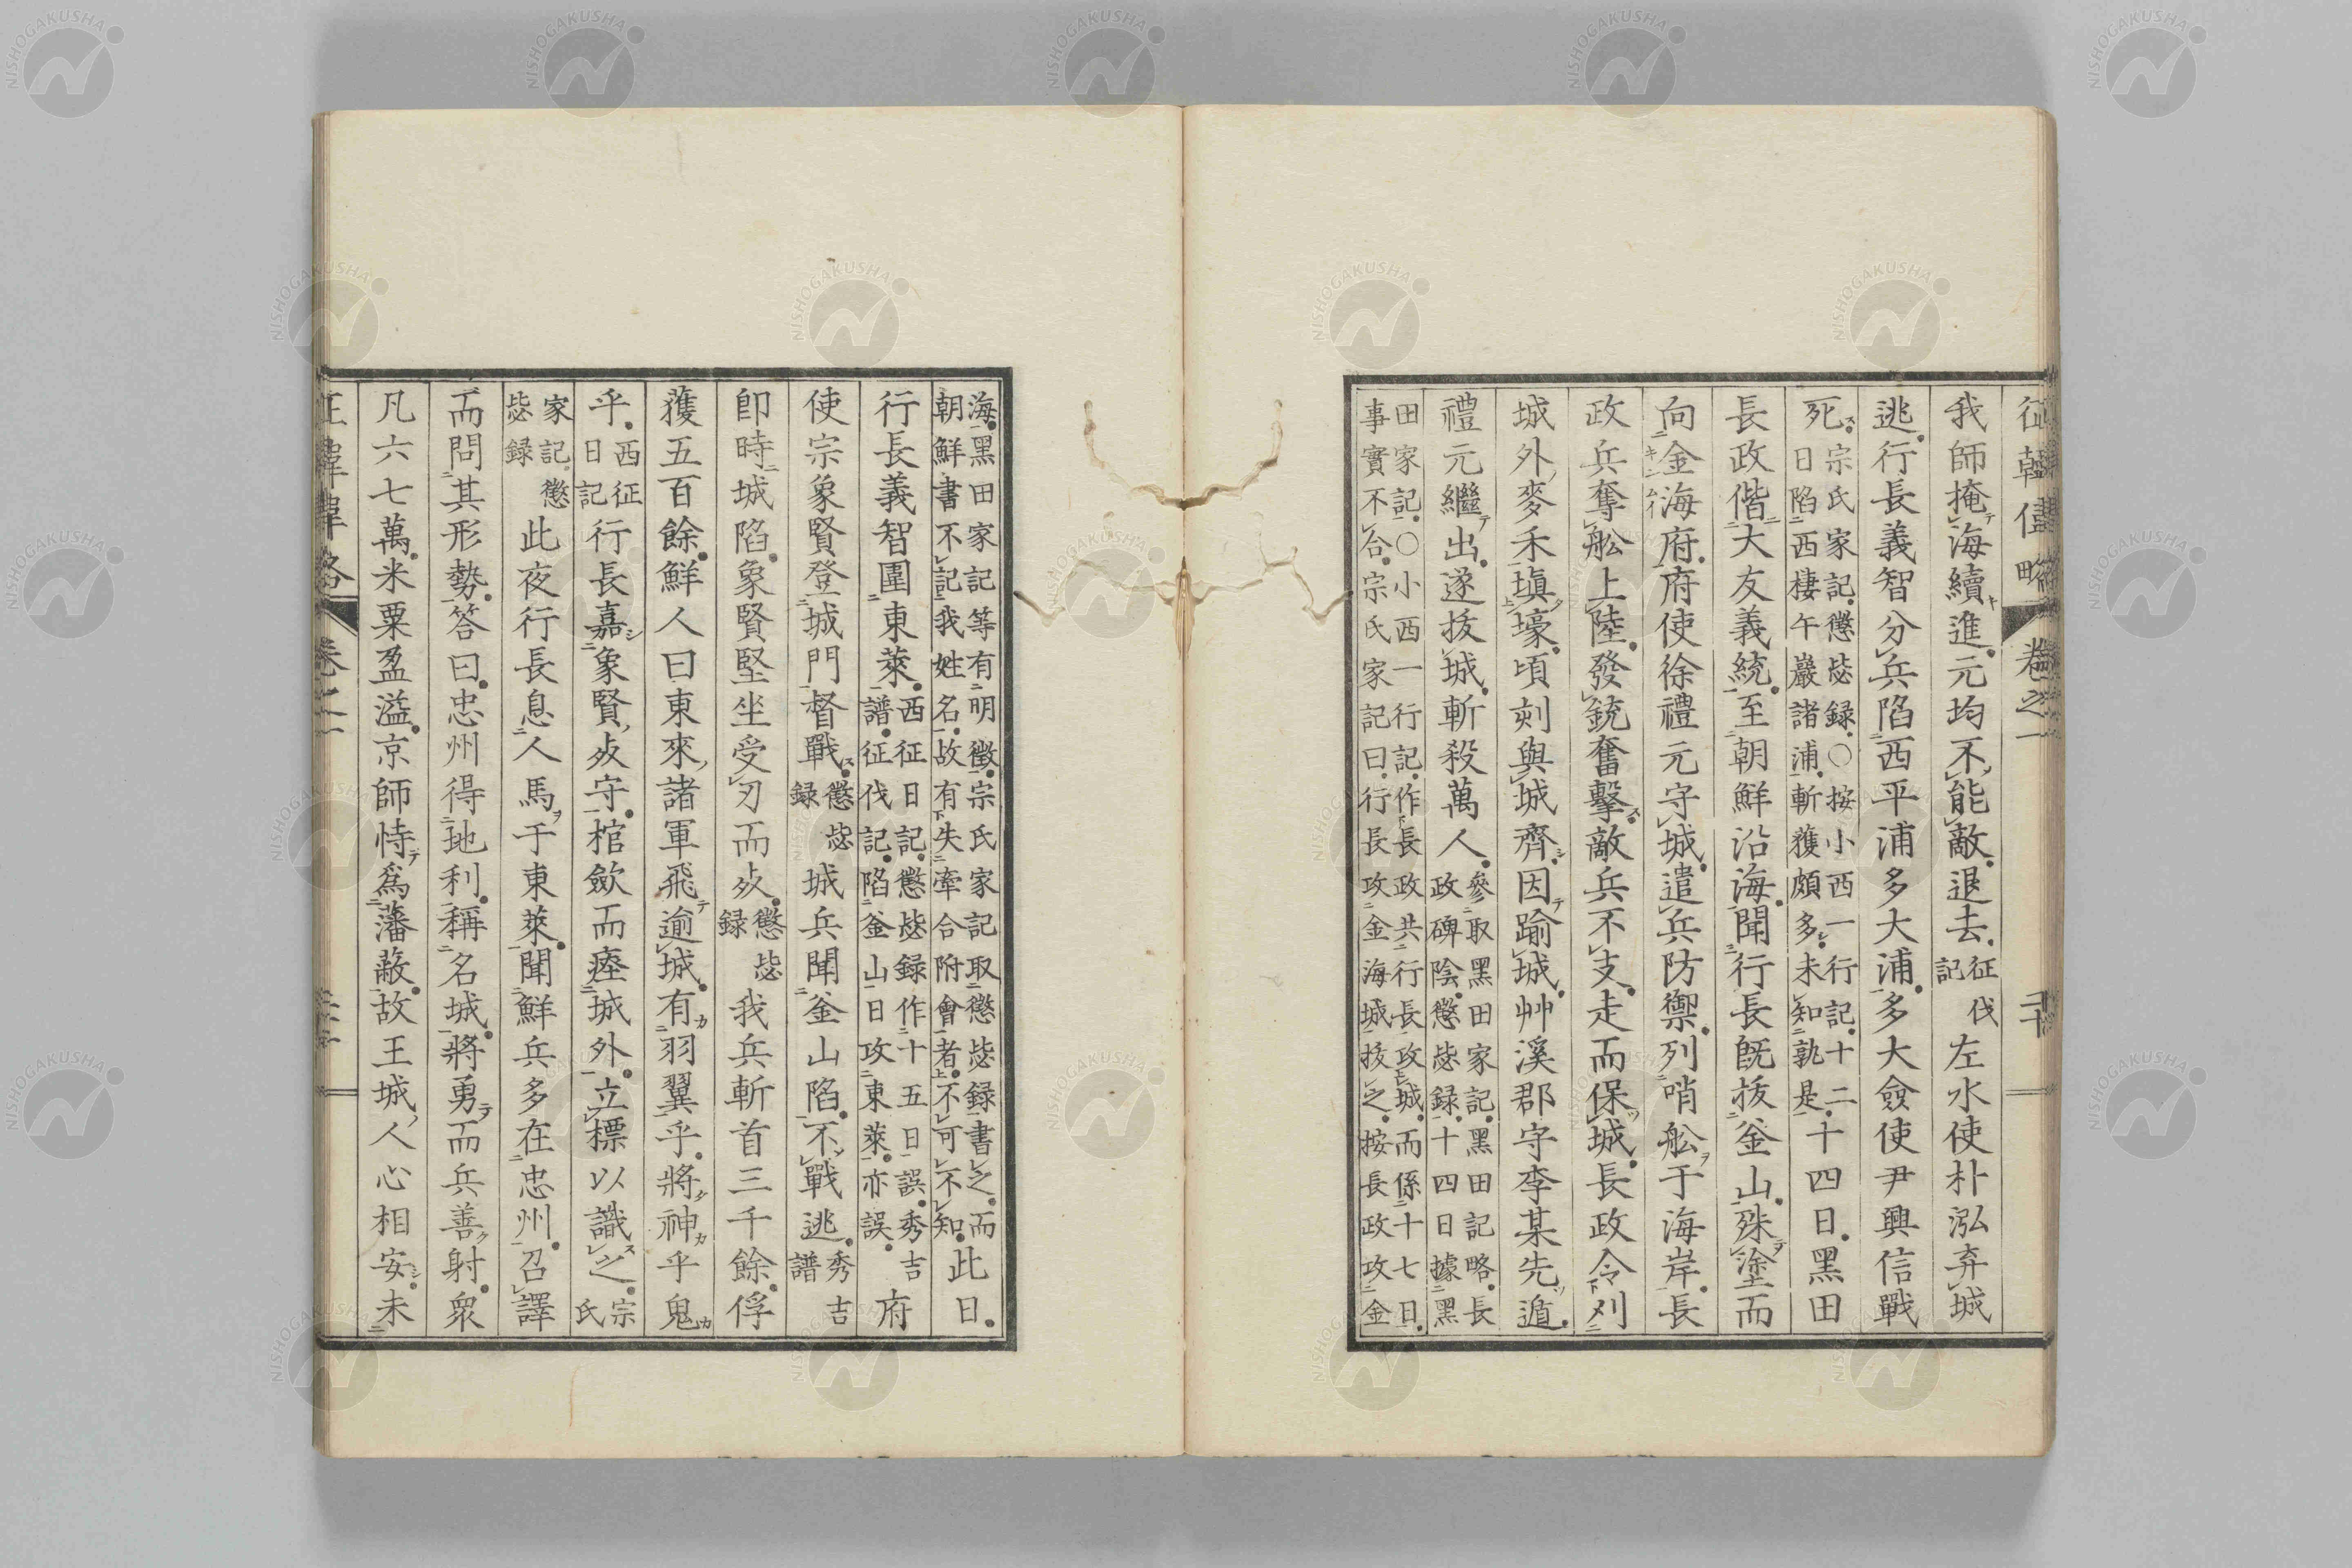 征韓偉略 卷之一 二十
我師掩海續進。元均不能敵。退去。征伐記左水使朴泓弃城
逃。行長義智分兵陷西平浦多大浦。多大僉使尹興信戰
死。宗氏家記。懲毖録。○按小西一行記。十二日陷西棲午巖諸浦。斬獲頗多。未知孰是。十四日。黑田
長政偕大友義統。至朝鮮沿海。聞行長既拔釜山。殊塗而
向金海府。府使徐禮元守城。遣兵防禦。列哨舩于海岸。長
政兵奪舩上陸。發銃奮擊。敵兵不支。走而保城。長政令刈
城外麥禾塡壕。頃刻與城齊。因踰城。艸溪郡守李某先遁。
禮元繼出。遂拔城。斬殺萬人。參取黑田家記。黑田記略。長政碑陰。懲毖録。十四日據黑
田家記。○小西一行記。作長政共行長攻城。而係十七日。事實不合。宗氏家記曰。行長攻金海城拔之。按長政攻金
海。黑田家記等有明徴。宗氏家記取懲毖録書之。而朝鮮書不記我姓名。故有失牽合附會者。不可不知。此日。
行長義智圍東萊。西征日記。懲毖録作十五日誤。秀吉譜。征伐記。陷釜山日攻東萊。亦誤。府
使宗象賢登城門督戰。懲毖録城兵聞釜山陷。不戰逃。秀吉譜
即時城陷。象賢堅坐受刃而死。懲毖録我兵斬首三千餘。俘
獲五百餘。鮮人曰東來諸軍飛逾城。有羽翼乎。將神乎鬼
乎。西征日記行長嘉象賢死守。棺歛而瘞城外。立標以識之。宗氏
家記。懲毖録此夜行長息人馬于東萊。聞鮮兵多在忠州。召譯
而問其形勢。答曰。忠州得地利。稱名城。將勇而兵善射。衆
凡六七萬。米粟盈溢。京師恃爲藩蔽。故王城人心相安。未
卷之一